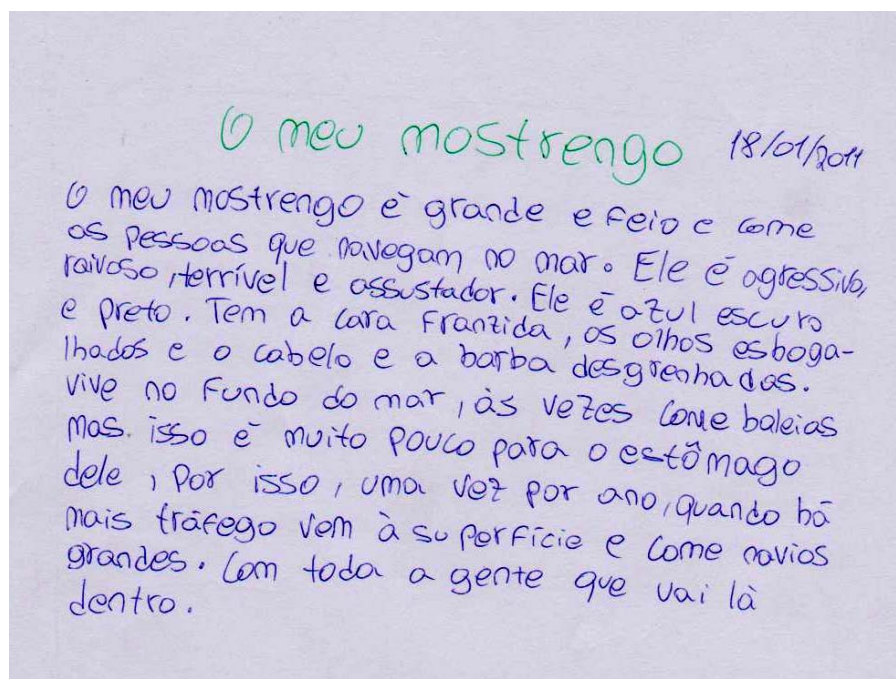 O meu mostrengo 18/01/2011
O meu mostrengo é grande e feio e come
as pessoas que navegam no mar. Ele é agressivo,
raivoso, terrível e assustador. Ele é azul escuro
e preto. Tem a cara franzida, os olhos esboga-
lhados e o cabelo e a barba desgrenhados.
vive no fundo do mar, às vezes come baleias
mas. isso é muito pouco para o estômago
dele, Por isso, uma vez por ano, quando há
mais tráfego vem à superfície e come navios
grandes. Com toda a gente que vai lá
dentro.